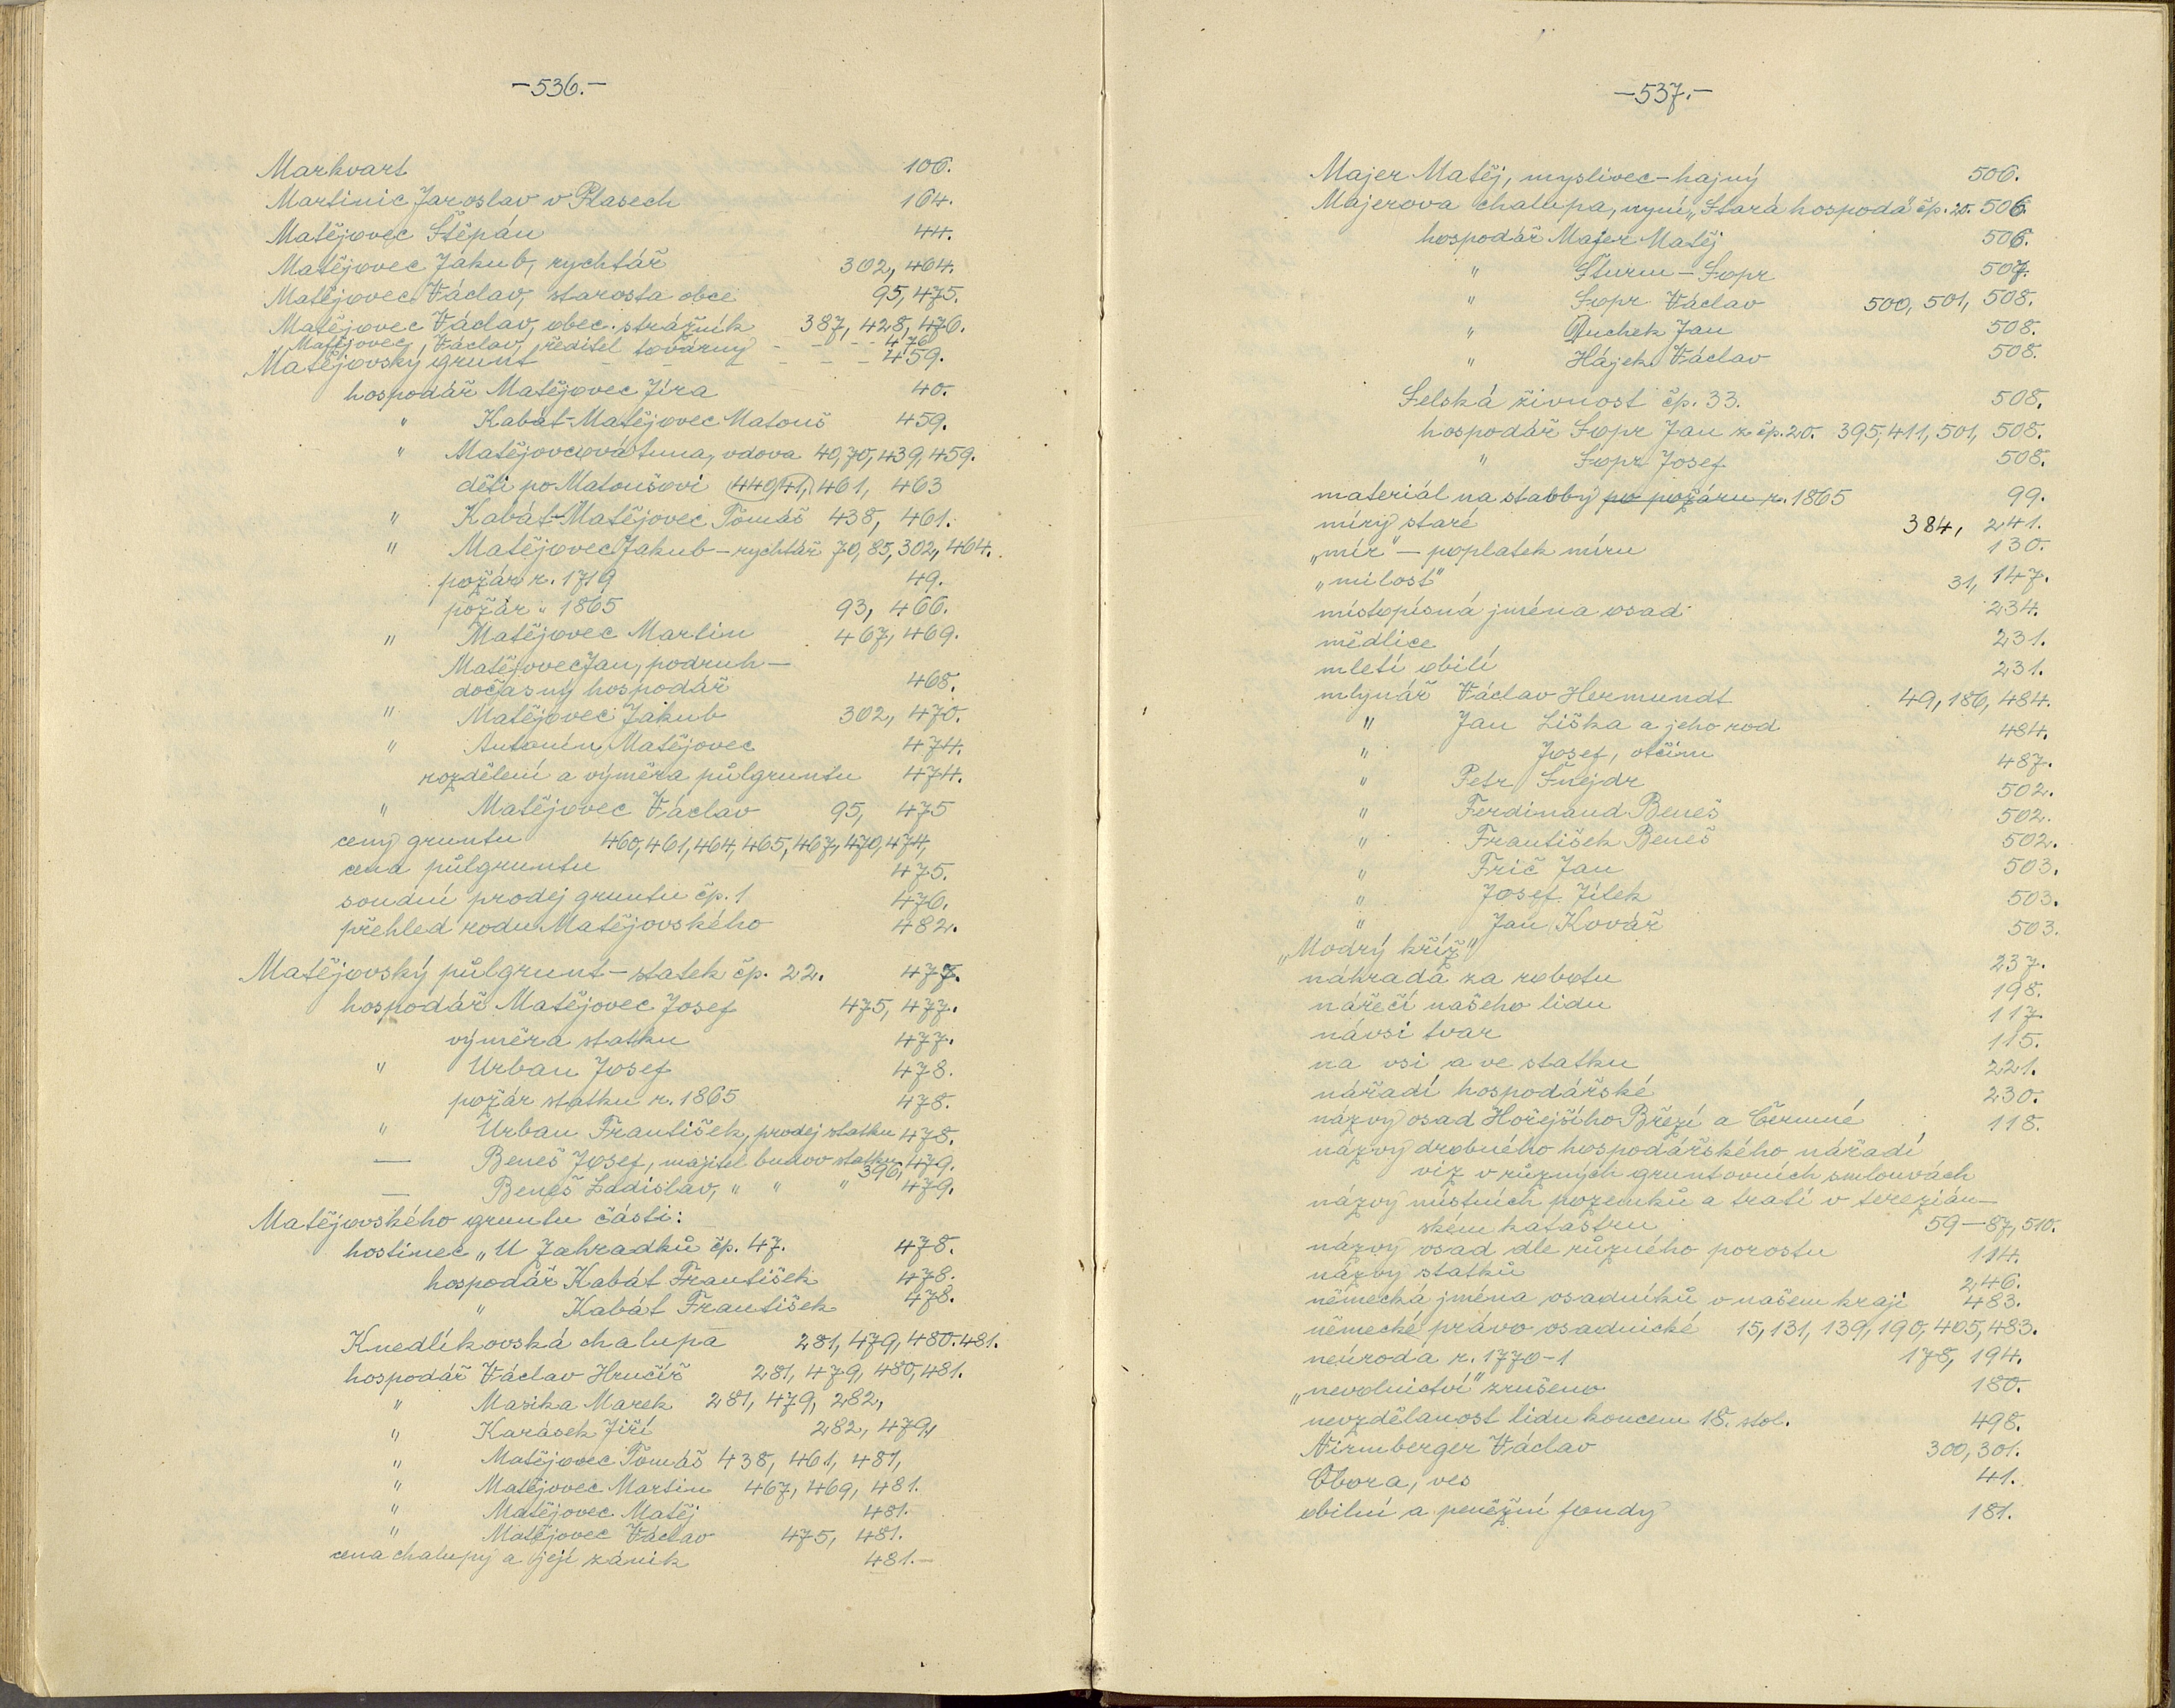 -536.-
Markvart 106.
Martinic Jaroslav v Plasech 164.
Matějovec Štěpán 44.
Matějovec Jakub, rychtář 302, 464.
Matějovec Václav, starosta obce 95, 475.
Matějovec Václav, obec. strážník 387, 428, 476.
Matějovec, Václav, ředitel továrny - - - - 476
Matějovský grunt - - - - - - 459.
hospodář Matějovec Jíra 40.
" Kabát-Matějovec Matouš 459.
" Matějovcová Anna, vdova 40, 70, 439, 459.
děti po Matoušovi 440, 41, 461, 463
" Kabát-Matějovec Tomáš 438, 461.
" Matějovec Jakub - rychtář 70, 85, 302, 464.
požár r. 1719 49.
požár " 1865 93, 466.
" Matějovec Martin 467, 469.
Matějovec Jan, podruh -
dočasný hospodář 468.
" Matějovec Jakub 302, 470.
" Antonín Matějovec 474.
rozdělení a výměra půlgruntu 474.
" Matějovec Václav 95, 475
ceny gruntu 460, 461, 464, 465, 467, 470, 474,
cena půlgruntu 475.
soudní prodej gruntu čp. 1 476.
přehled rodu Matějovského 482.
Matějovský půlgrunt - statek čp. 22. 477.
hospodář Matějovec Josef 475, 477.
výměra statku 477.
" Urban Josef 478.
požár statku r. 1865 478.
" Urban František, prodej statku 478.
— Beneš Josef, majitel budov statku, 479.
— Beneš Ladislav, " " " 396, 479.
Matějovského gruntu části:
hostinec „U Zahradků čp. 47. 478.
hospodář Kabát František 478.
" Kabát František 478.
Knedlíkovská chalupa 281, 479, 480. 481.
hospodář Václav Hručíř 281, 479, 480, 481.
" Masika Marek 281, 479, 282,
" Karásek Jiří 282, 479,
" Matějovec Tomáš 438, 461, 481,
" Matějovec Martin 467, 469, 481.
" Matějovec Matěj 481.
" Matějovec Václav 475, 481.
cena chalupy a její zánik 481.-
-537.-
Majer Matěj, myslivec - hajný 506.
Majerova chalupa, nyní „Stará hospoda" čp. 20. 506
hospodář Majer Matěj 506.
" Šturm - Sopr 507.
" Sopr Václav 500, 501, 508.
" Duchek Jan 508.
" Hájek Václav 508.
Selská živnost čp. 33. 508.
hospodář Sopr Jan z čp. 20. 395, 411, 501, 508.
" Sopr Josef 508.
materiál na stavby po požáru r. 1865 99.
míry staré 384, 241.
„mír" - poplatek míru 130.
„milost" 31, 147.
místopisná jména osad 234.
mědlice 231.
mletí obilí 231.
mlynář Václav Hermundt 49, 186, 484.
" Jan Liška a jeho rod 484.
" Josef, otčím 487.
" Petr Šnejdr 502.
" Ferdinand Beneš 502.
" František Beneš 502.
" Frič Jan 503.
" Josef Jílek 503.
" Jan Kovář 503.
„Modrý kříž" 237.
náhrada za robotu 198.
nářečí našeho lidu 117.
návsi tvar 115.
na vsi a ve statku 221.
nářadí hospodářské 230.
názvy osad Hořejšího Březí a Čermné 118.
názvy drobného hospodářského nářadí
viz v různých gruntovních smlouvách
názvy místních pozemků a tratí v tereziánském
katastru 59-87, 510.
názvy osad dle různého porostu 114.
názvy statků 246.
německá jména osadníků v našem kraji 483.
německé právo osadnické 15, 131, 139, 190, 405, 483.
neúroda r. 1770-1 178, 194.
„nevolnictví" zrušeno 180.
nevzdělanost lidu koncem 18. stol. 498.
Nirmberger Václav 300, 301.
Obora, ves 41.
obilní a peněžní fondy 181.